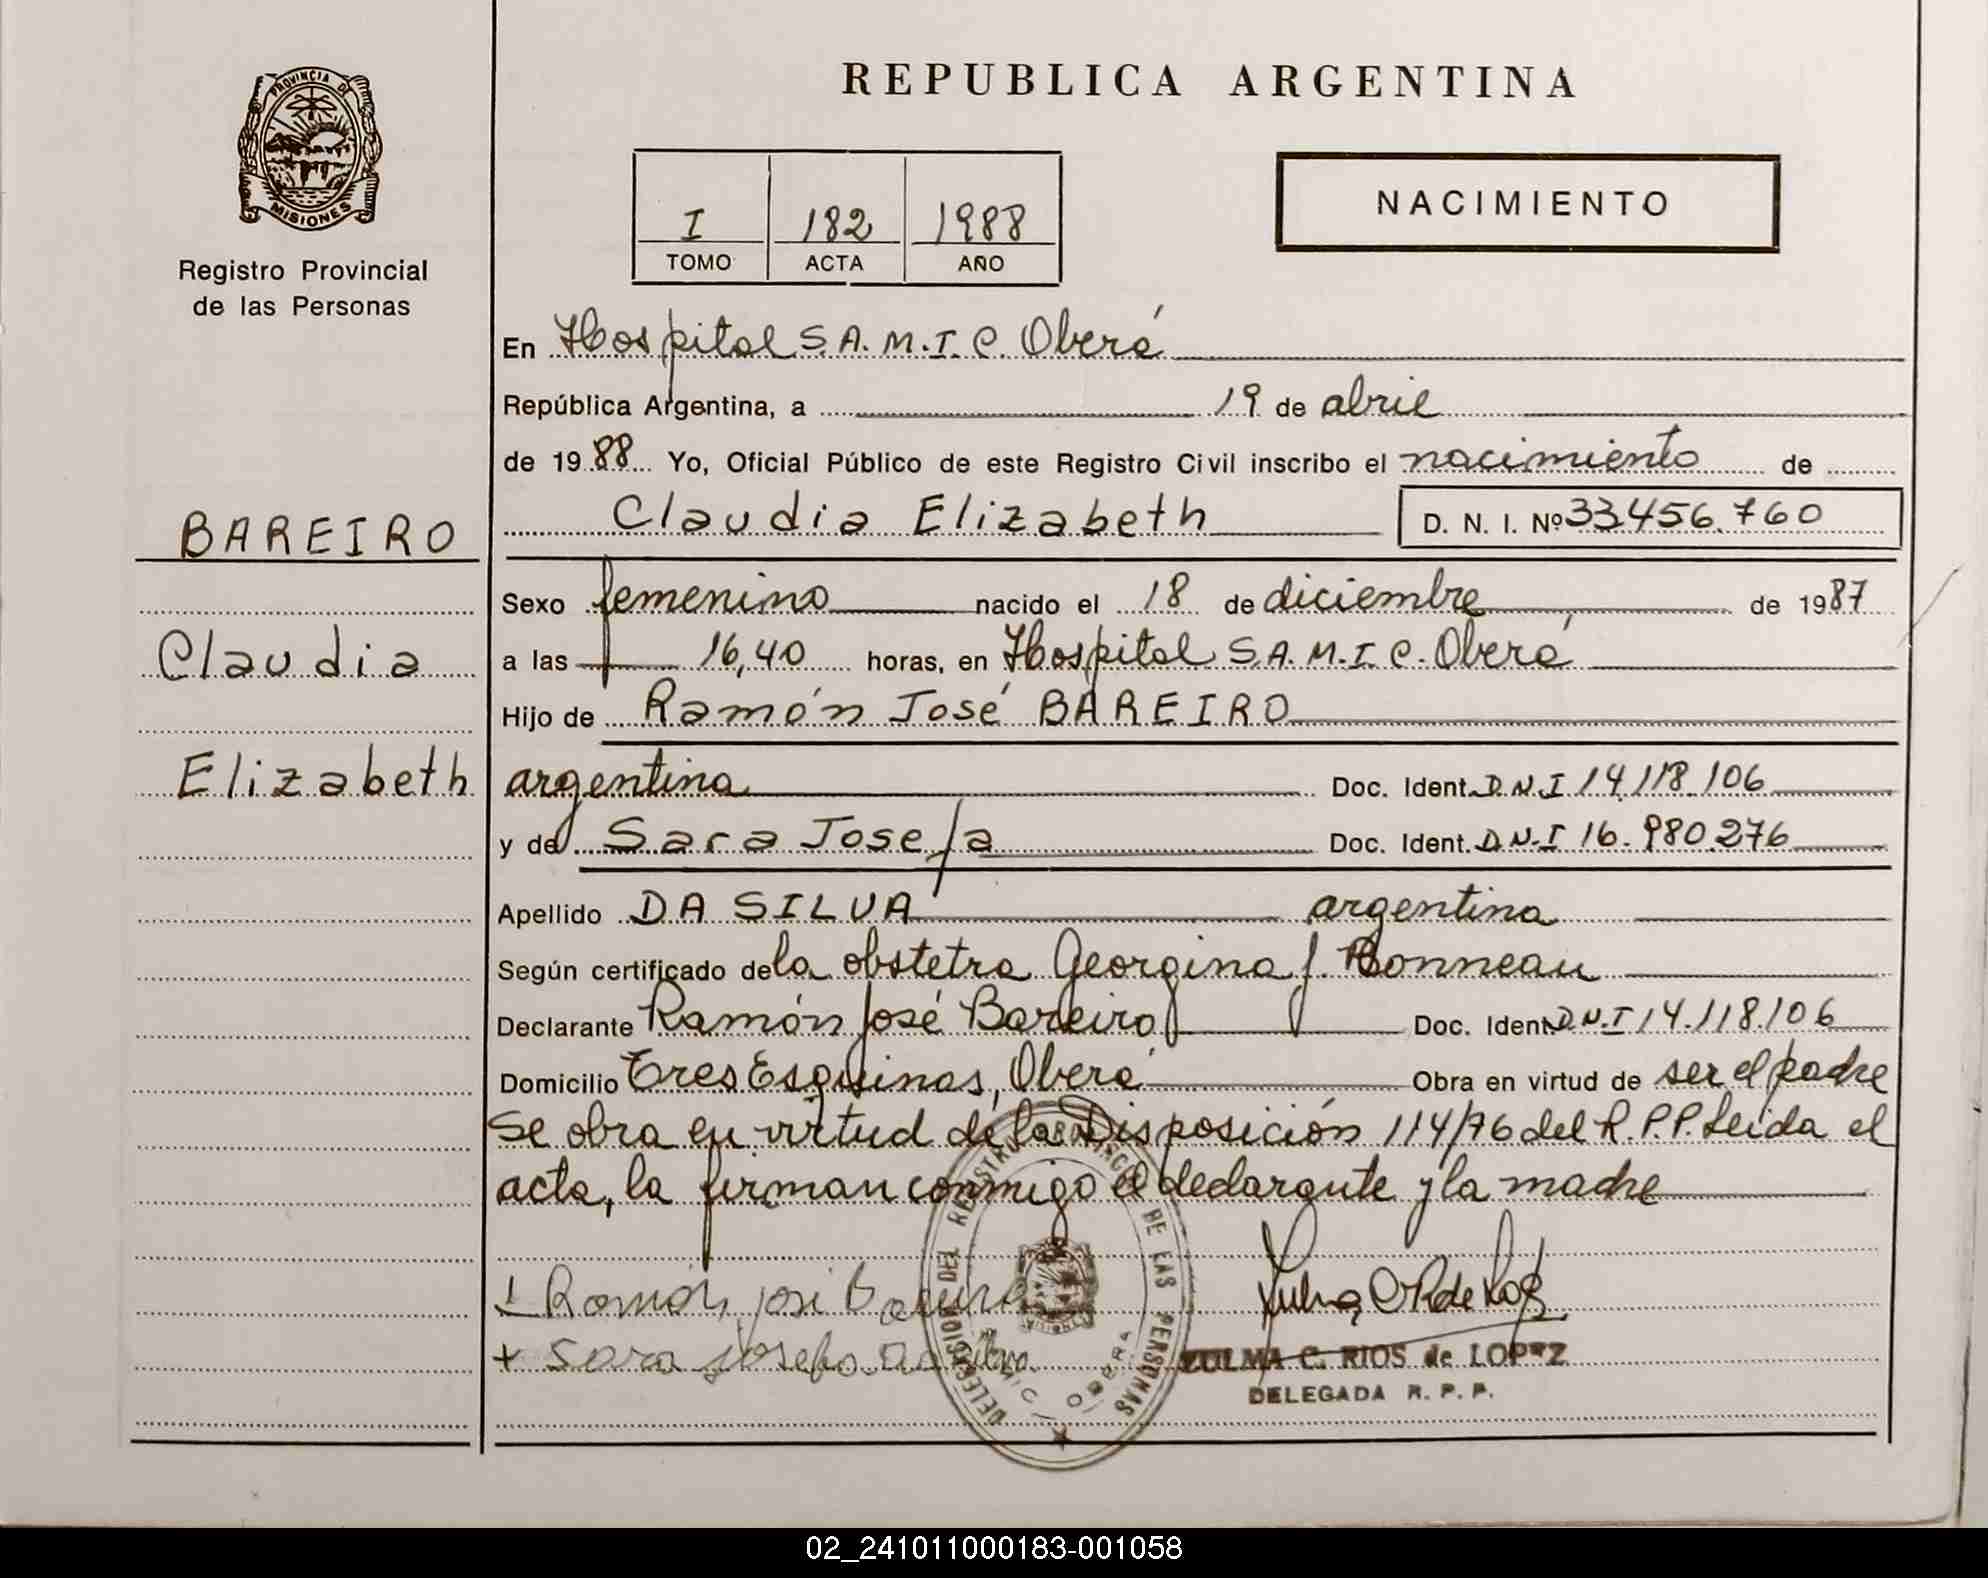 PROVINCIA DE
MISIONES
Registro Provincial
de las Personas
BAREIRO
Claudia
Elizabeth
REPUBLICA ARGENTINA
I 182 1988
TOMO ACTA AÑO
NACIMIENTO
En Hospital S.A.M.I.C. Oberá
República Argentina, a 19 de abril
de 1988 Yo, Oficial Público de este Registro Civil inscribo el nacimiento de
Claudia Elizabeth D. N. I. Nº 33.456.760
Sexo femenino nacido el 18 de diciembre de 1987
a las 16,40 horas, en Hospital S.A.M.I.C. Oberá
Hijo de Ramón José BAREIRO
argentina Doc. Ident. D.N.I 14.118.106
y de Sara Josefa Doc. Ident. D.N.I 16.980.276
Apellido DA SILVA argentina
Según certificado de la obstetra Georgina J. Bonneau
Declarante Ramón José Bareiro Doc. Ident. D.N.I 14.118.106
Domicilio Tres Esquinas, Oberá Obra en virtud de ser el padre
Se obra en virtud de la Disposición 114/76 del R.P.P. Leida el
acta, la firman conmigo el declarante y la madre
Ramón José Bareiro
Sara Josefa Da Silva
DELEGACION DEL REGISTRO PROVINCIAL DE LAS PERSONAS
MISIONES
OBERA
ZULMA C. RIOS de LOPEZ
DELEGADA R. P. P.
02_241011000183-001058